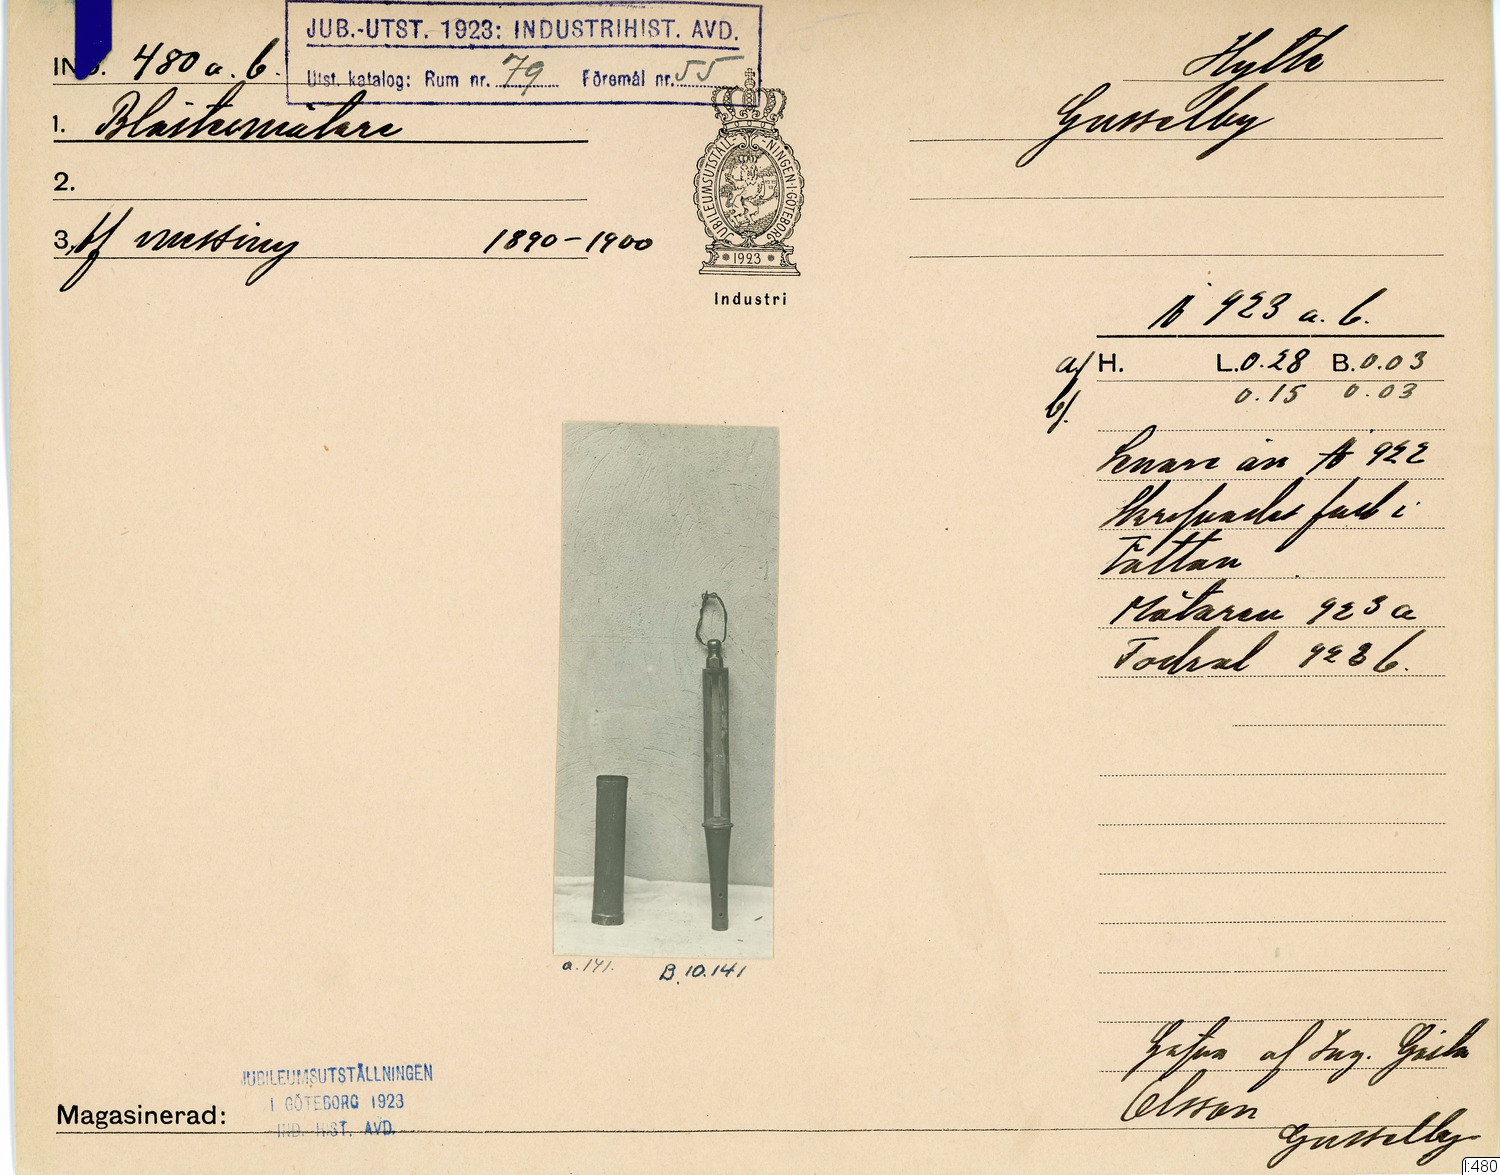 JUB.-UTST. 1923: INDUSTRIHIST. AVD.
Utst. katalog: Rum nr. 79 Föremål nr. 55
480 a. b.
1. Blästermätare
2.
3. Af messing 1890-1900
JUBILEUMSUTSTÄLLNINGEN I GÖTEBORG
1923
Industri
Hytte
Gusselby
N 923 a. b.
a/ H. L. 0.28 B. 0.03
b/. 0.15 0.03
Senare än N 922
fast i
Mätaren 923 a
Fodral 923 b.
a.141. B.10.141
JUBILEUMSUTSTÄLLNINGEN
I GÖTEBORG 1923
IND. HIST. AVD.
Magasinerad:
af Ing.
Olsson
Gusselby
I:480